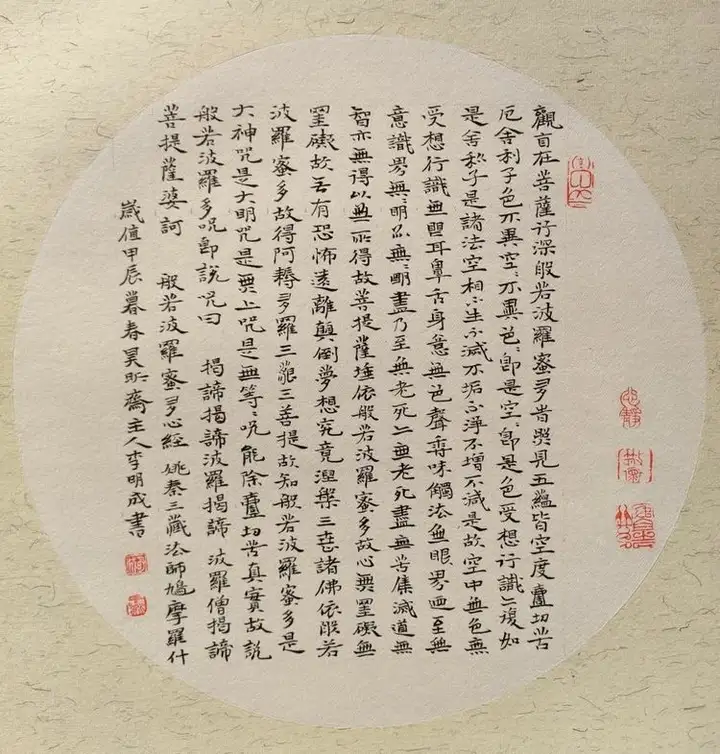 觀自在菩薩行深般若波羅蜜多旹照見五蘊皆空度壹切苦
厄舍利子色不異空〻不異色〻即是空〻即是色受想行識亦復如
是舍利子是諸法空相不生不滅不垢不淨不增不減是故空中無色無
受想行識無眼耳鼻舌身意無色聲香味觸法無眼界迺至無
意識界無〻明亦無〻明盡乃至無老死亦無老死盡無苦集滅道無
智亦無得以無所得故菩提薩埵依般若波羅蜜多故心無罣礙無
罣礙故无有恐怖遠離顛倒夢想究竟涅槃三世諸佛依般若
波羅蜜多故得阿耨多羅三藐三菩提故知般若波羅蜜多是
大神咒是大明咒是無上咒是無等〻咒能除壹切苦真實故說
般若波羅多咒即說咒曰 揭諦揭諦波羅揭諦 波羅僧揭諦
菩提薩婆訶 般若波羅蜜多心經 姚秦三藏法師鳩摩羅什
歲值甲辰暮春昊昕齋主人李明成書
心靜